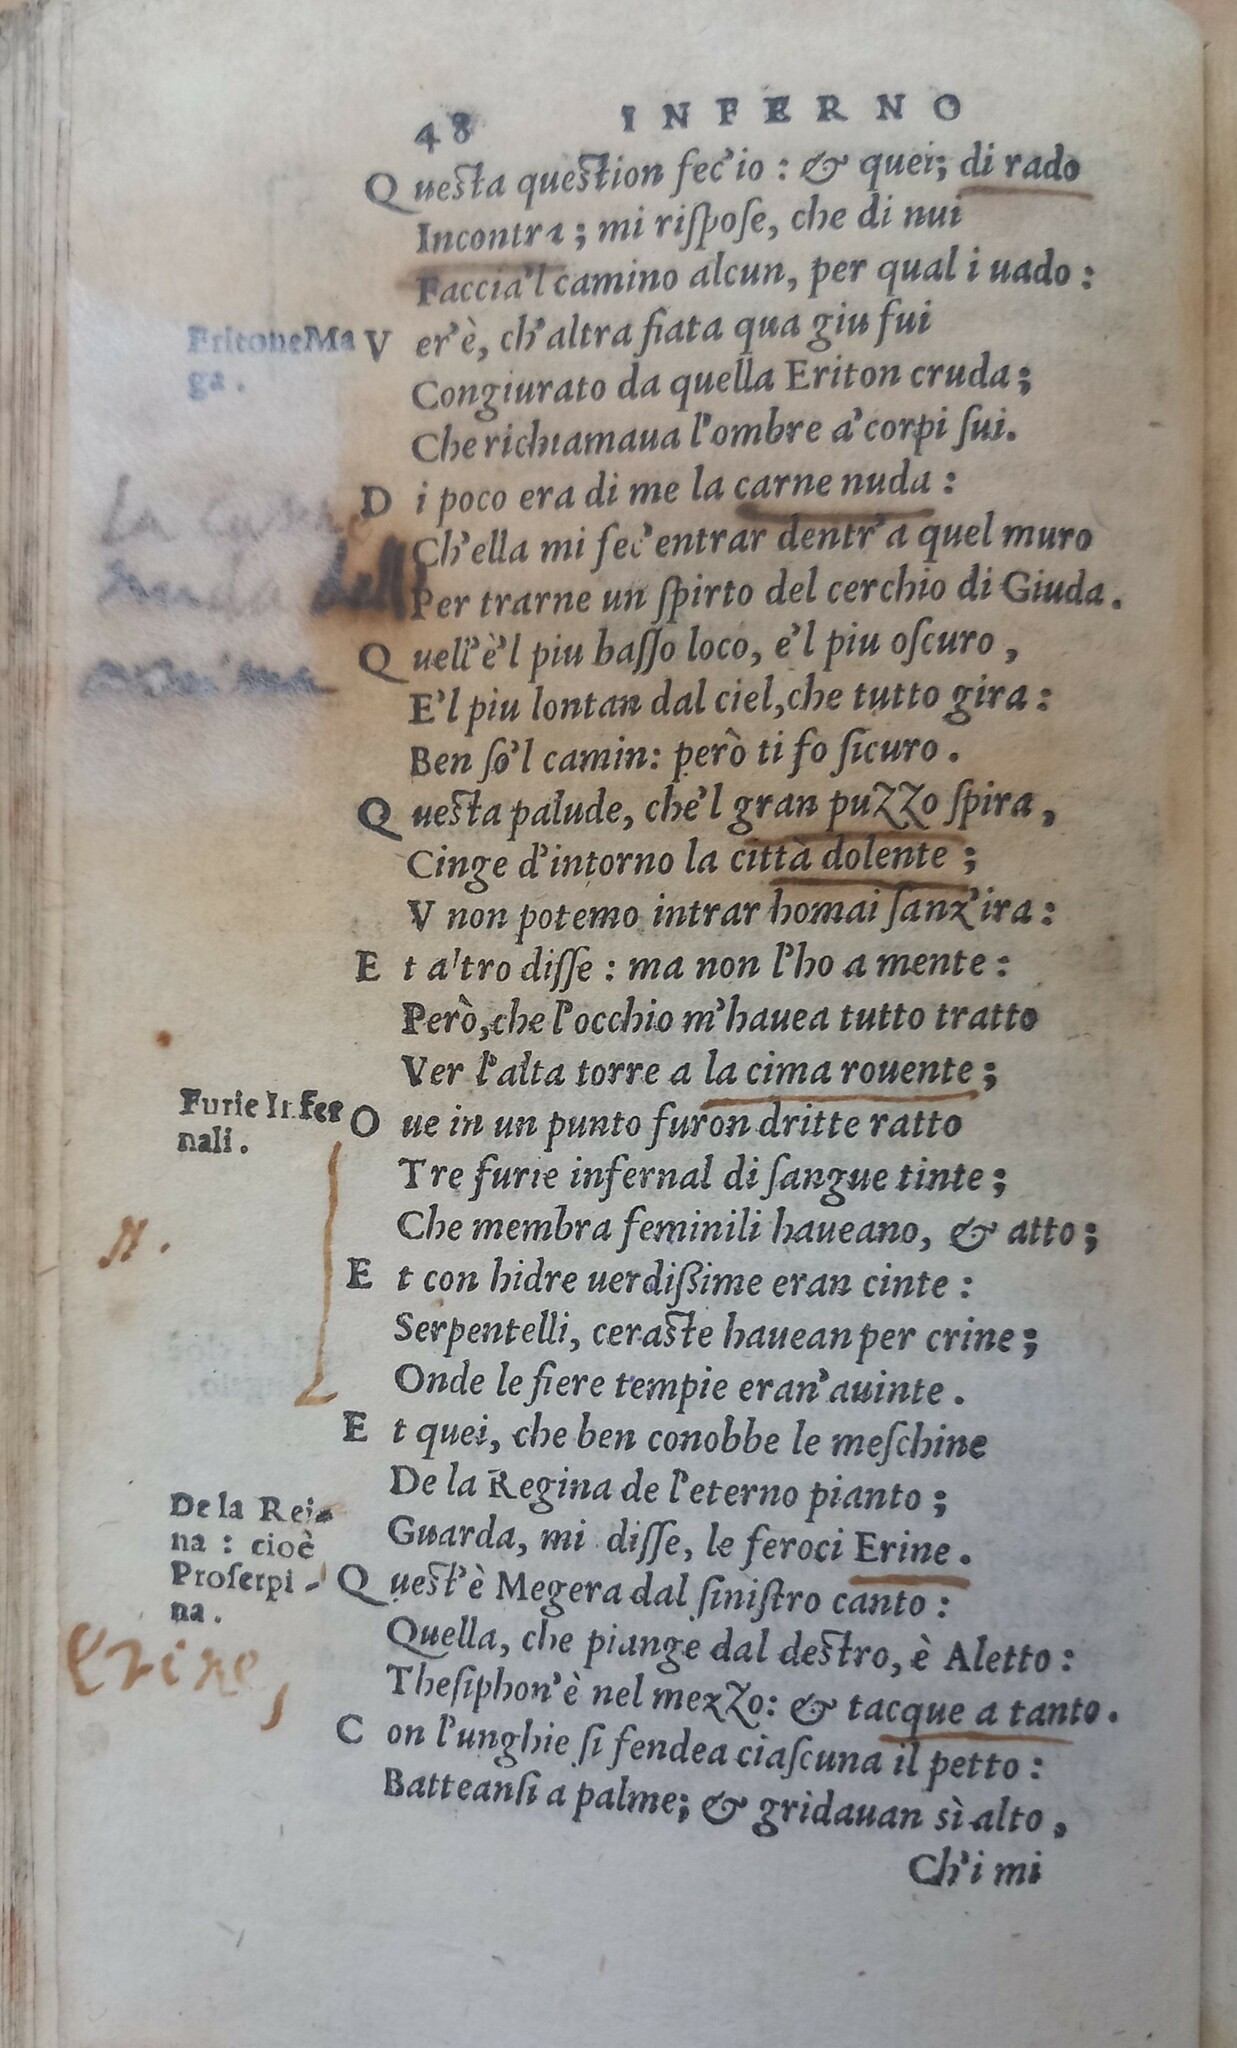 48 INFERNO
Questa question fec'io : & quei; di rado
Incontra; mi rispose, che di nui
Faccia'l camino alcun, per qual i uado :
EritoneMa
ga.
Ver'è, ch'altra fiata qua giu fui
Congiurato da quella Eriton cruda;
Che richiamaua l'ombre a'corpi sui.
Di poco era di me la carne nuda :
Ch'ella mi fec'entrar dentr'a quel muro
Per trarne un spirto del cerchio di Giuda.
Quell'è'l piu basso loco, e'l piu oscuro,
E'l piu lontan dal ciel,che tutto gira :
Ben so'l camin: però ti fo sicuro.
Questa palude, che'l gran puzzo spira,
Cinge d'intorno la città dolente;
V non potemo intrar homai sanz'ira :
Et altro disse : ma non l'ho a mente :
Però,che l'occhio m'hauea tutto tratto
Ver l'alta torre a la cima rouente;
Furie Infer
nali.
Oue in un punto furon dritte ratto
Tre furie infernal di sangue tinte;
Che membra feminili haueano, & atto;
N.
Et con hidre uerdissime eran cinte :
Serpentelli, ceraste hauean per crine;
Onde le fiere tempie eran'auinte.
Et quei, che ben conobbe le meschine
De la Regina de l'eterno pianto;
Guarda, mi disse, le feroci Erine.
De la Rei-
na : cioè
Proserpi-
na.
Quest'è Megera dal sinistro canto :
Quella, che piange dal destro, è Aletto :
Thesiphon'è nel mezzo: & tacque a tanto.
Erine,
Con l'unghie si fendea ciascuna il petto :
Batteansi a palme; & gridauan sì alto,
Ch'i mi